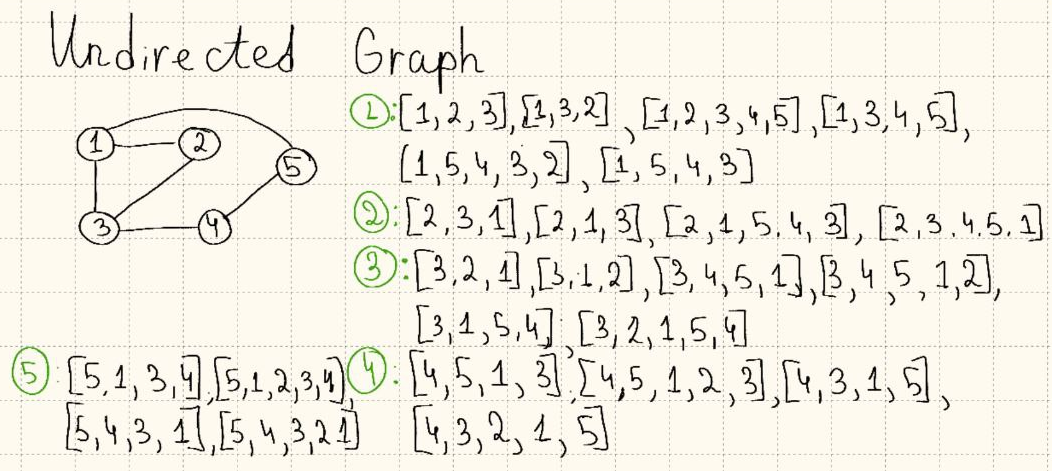 Undirected Graph
1 2 5
3 4
①:[1,2,3],[1,3,2],[1,2,3,4,5],[1,3,4,5],
[1,5,4,3,2],[1,5,4,3]
②:[2,3,1],[2,1,3],[2,1,5.4,3],[2,3.4.5.1]
③:[3,2,1],[3,1,2],[3,4,5,1],[3,4,5,1,2],
[3,1,5,4],[3,2,1,5,4]
④:[4,5,1,3],[4,5,1,2,3],[4,3,1,5],
[4,3,2,1,5]
⑤:[5,1,3,4],[5,1,2,3,4],
[5,4,3,1],[5,4,3,2 1]